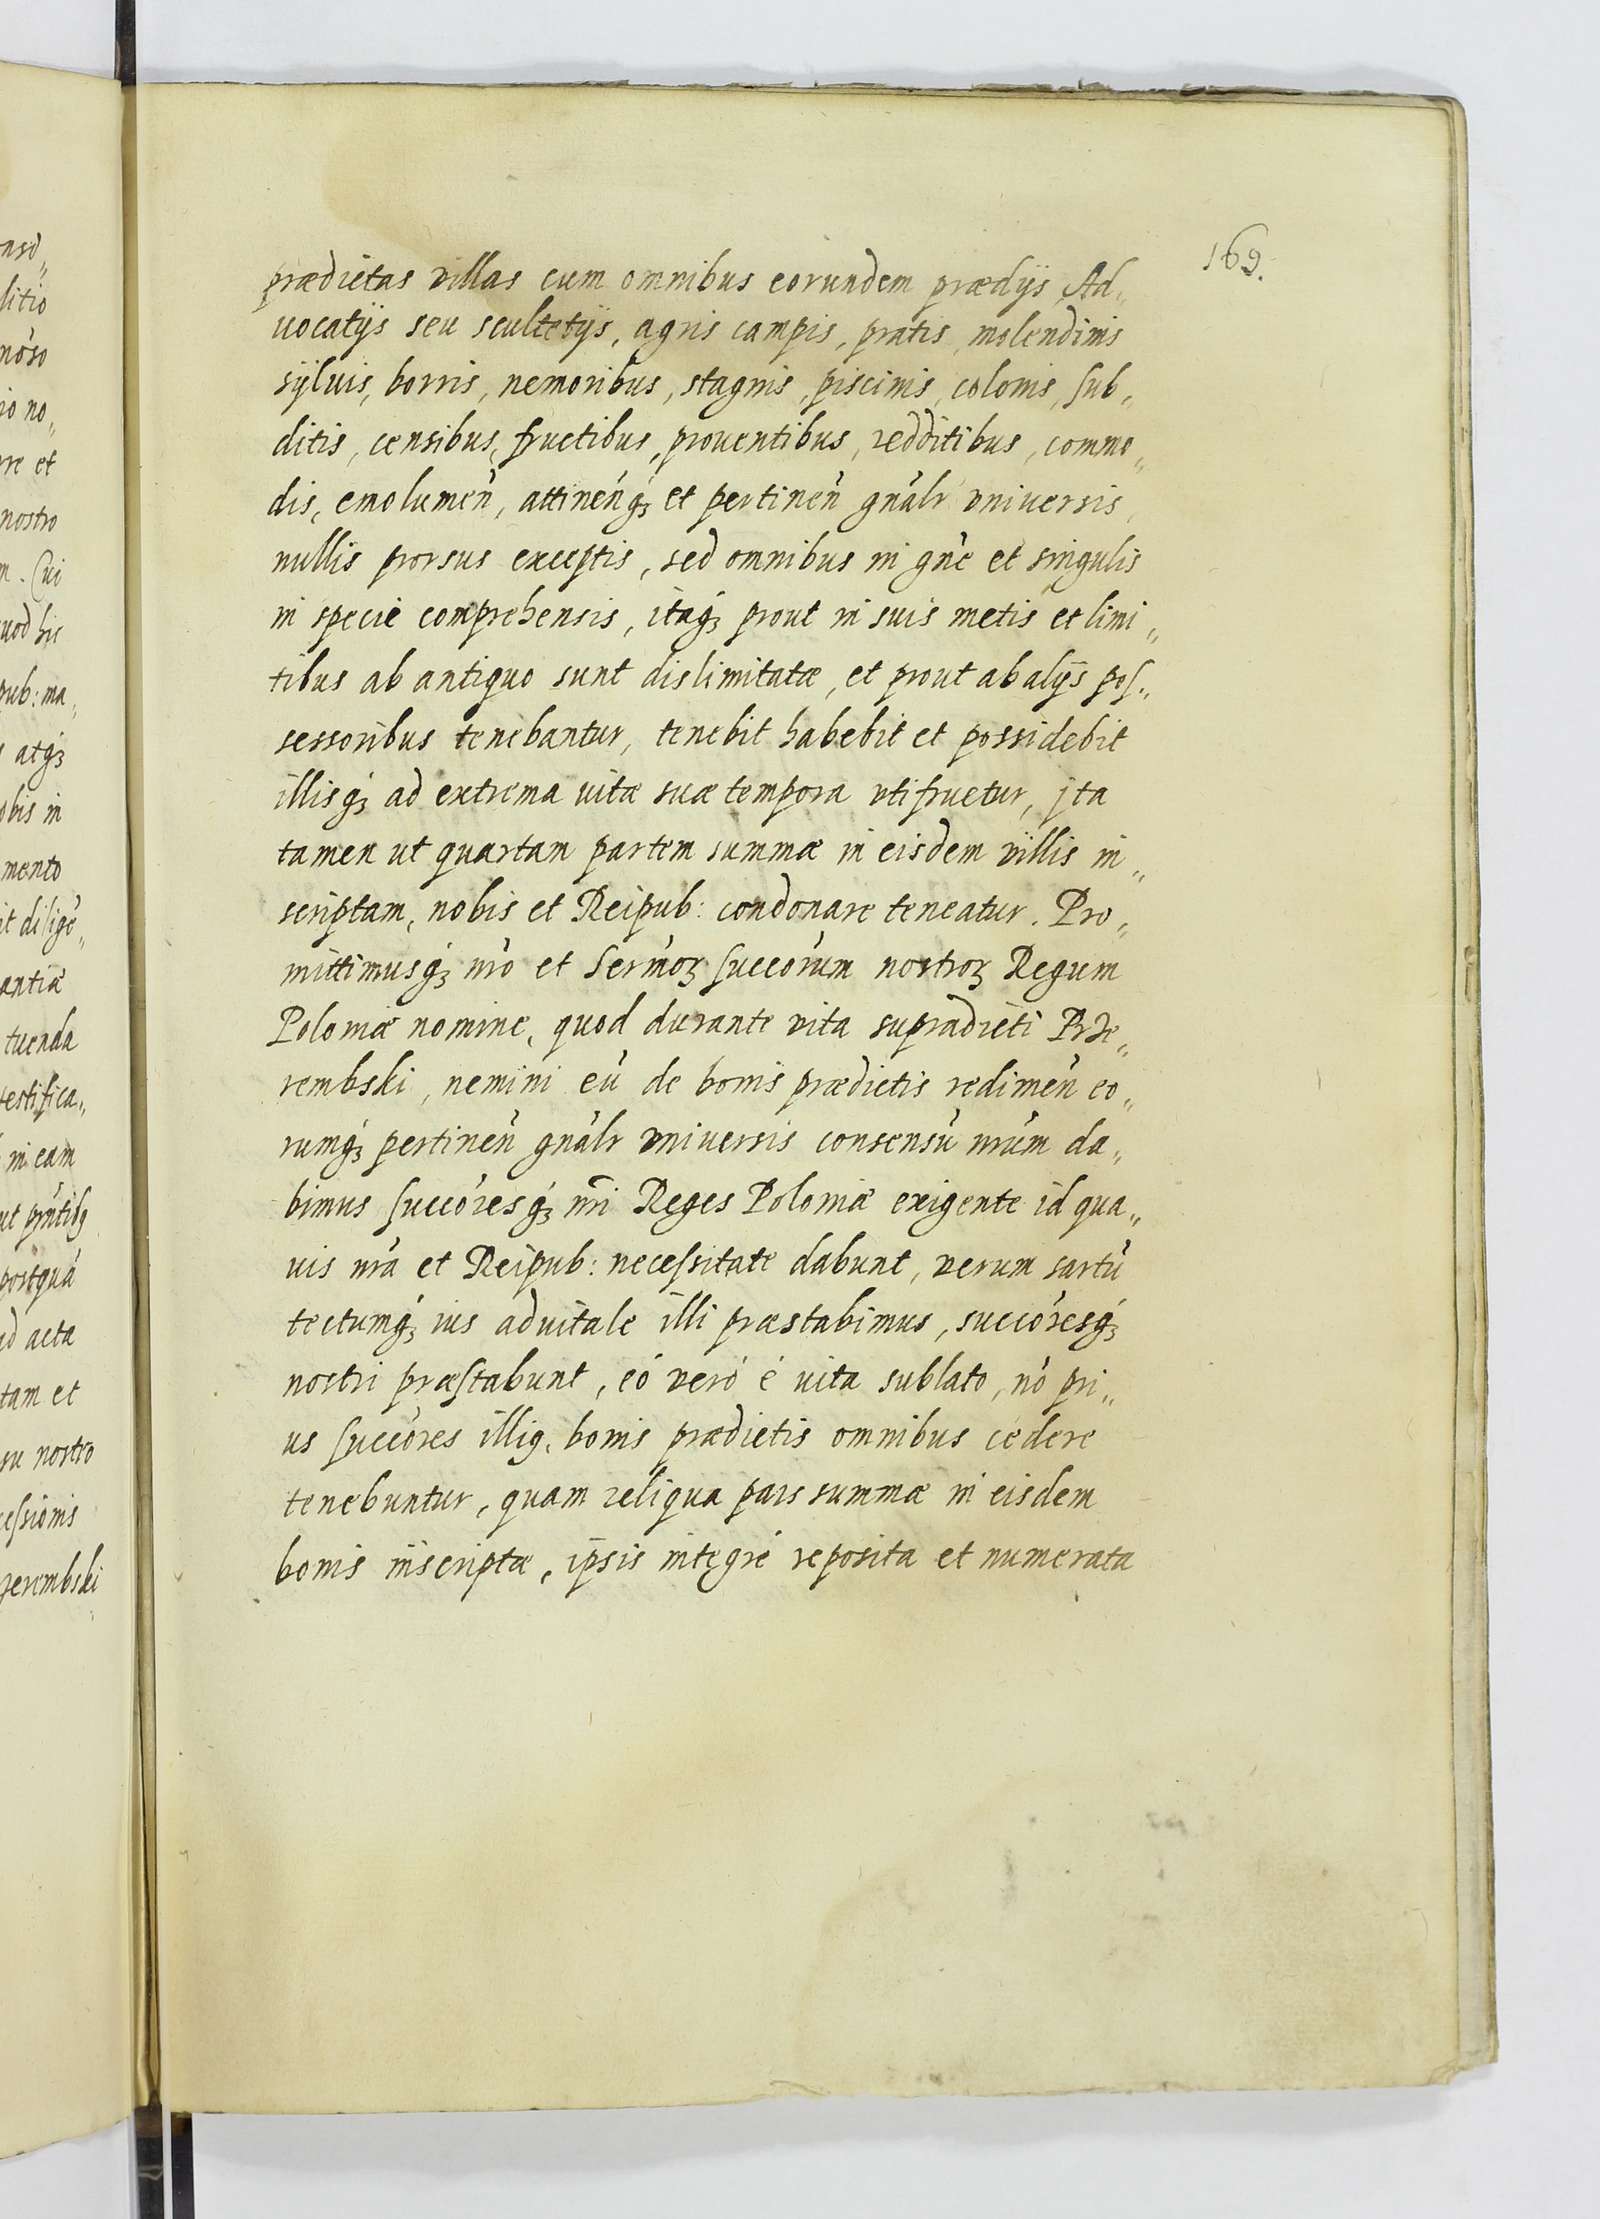 169.
prædictas villas cum omnibus eorundem prædijs Ad„
uocatijs seu scultetijs, agris campis, pratis, molendinis
sÿluis, borris, nemoribus, stagnis, piscinis, colonis, sub„
ditis, censibus, fructibus, prouentibus, redditibus, commo„
dis, emolumeñ, attineñq₃ et pertineñ gñalr vniversis,
nullis prorsus exceptis, sed omnibus in gñe et singulis
in specie comprehensis, itaq₃ prout in suis metis et limi„
tibus ab antiquo sunt dislimitatæ, et prout ab alijs pos„
sessoribus tenebantur, tenebit habebit et possidebit
illisq₃ ad extrema vitæ suæ tempora vtifruetur, jta
tamen ut quartam partem summæ in eisdem villis in„
scriptam, nobis et Reipub: condonare teneatur. Pro„
mittimusq₃ nr̃o et Serm̃oꝝ succõrum nostroꝝ Regum
Poloniæ nomine, quod durante vita supradicti Prze„
rembski, nemini eũ de bonis prædictis redimeñ eo„
rumq₃ pertineñ gñalr vniversis consensũ nr̃um da„
bimus succõresq₃ nr̃i Reges Poloniæ exigente id qua„
uis nr̃a et Reipub: necessitate dabunt, verum sartũ
tectumq₃ ius aduitale illi præstabimus, succõresq₃
nostri præstabunt, eó veró é uita sublato, nõ pri„
us succõres illiq. bonis prædictis omnibus cedere
tenebuntur, quam reliqua pars summæ in eisdem
bonis inscriptæ, ipsis integré reposita et numerata